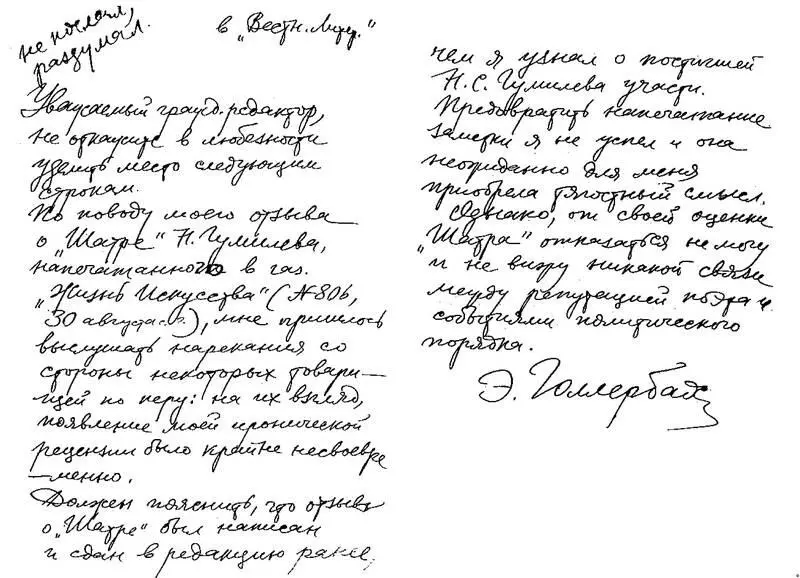 не послал,
раздумал.
в „Вестн. Литер."
Уважаемый гражд. редактор,
не откажите в любезности
уделить место следующим
строкам.
По поводу моего отзыва
о „Шатре" Н. Гумилева,
напечатанного в газ.
„Жизнь Искусства" (№ 806,
30 августа с.г.), мне пришлось
выслушать нарекания со
стороны некоторых товари-
щей по перу: на их взгляд,
появление моей иронической
рецензии было крайне несвоевре-
—менно.
Должен пояснить, что отзыв
о „Шатре" был написан
и сдан в редакцию ранее,
чем я узнал о постигшей
Н. С. Гумилева участи.
Предотвратить напечатание
заметки я не успел и она
неожиданно для меня
приобрела тягостный смысл.
Однако, от своей оценки
„Шатра" отказаться не могу
и не вижу никакой связи
между репутацией поэта и
событиями политического
порядка.
Э. Голлербах